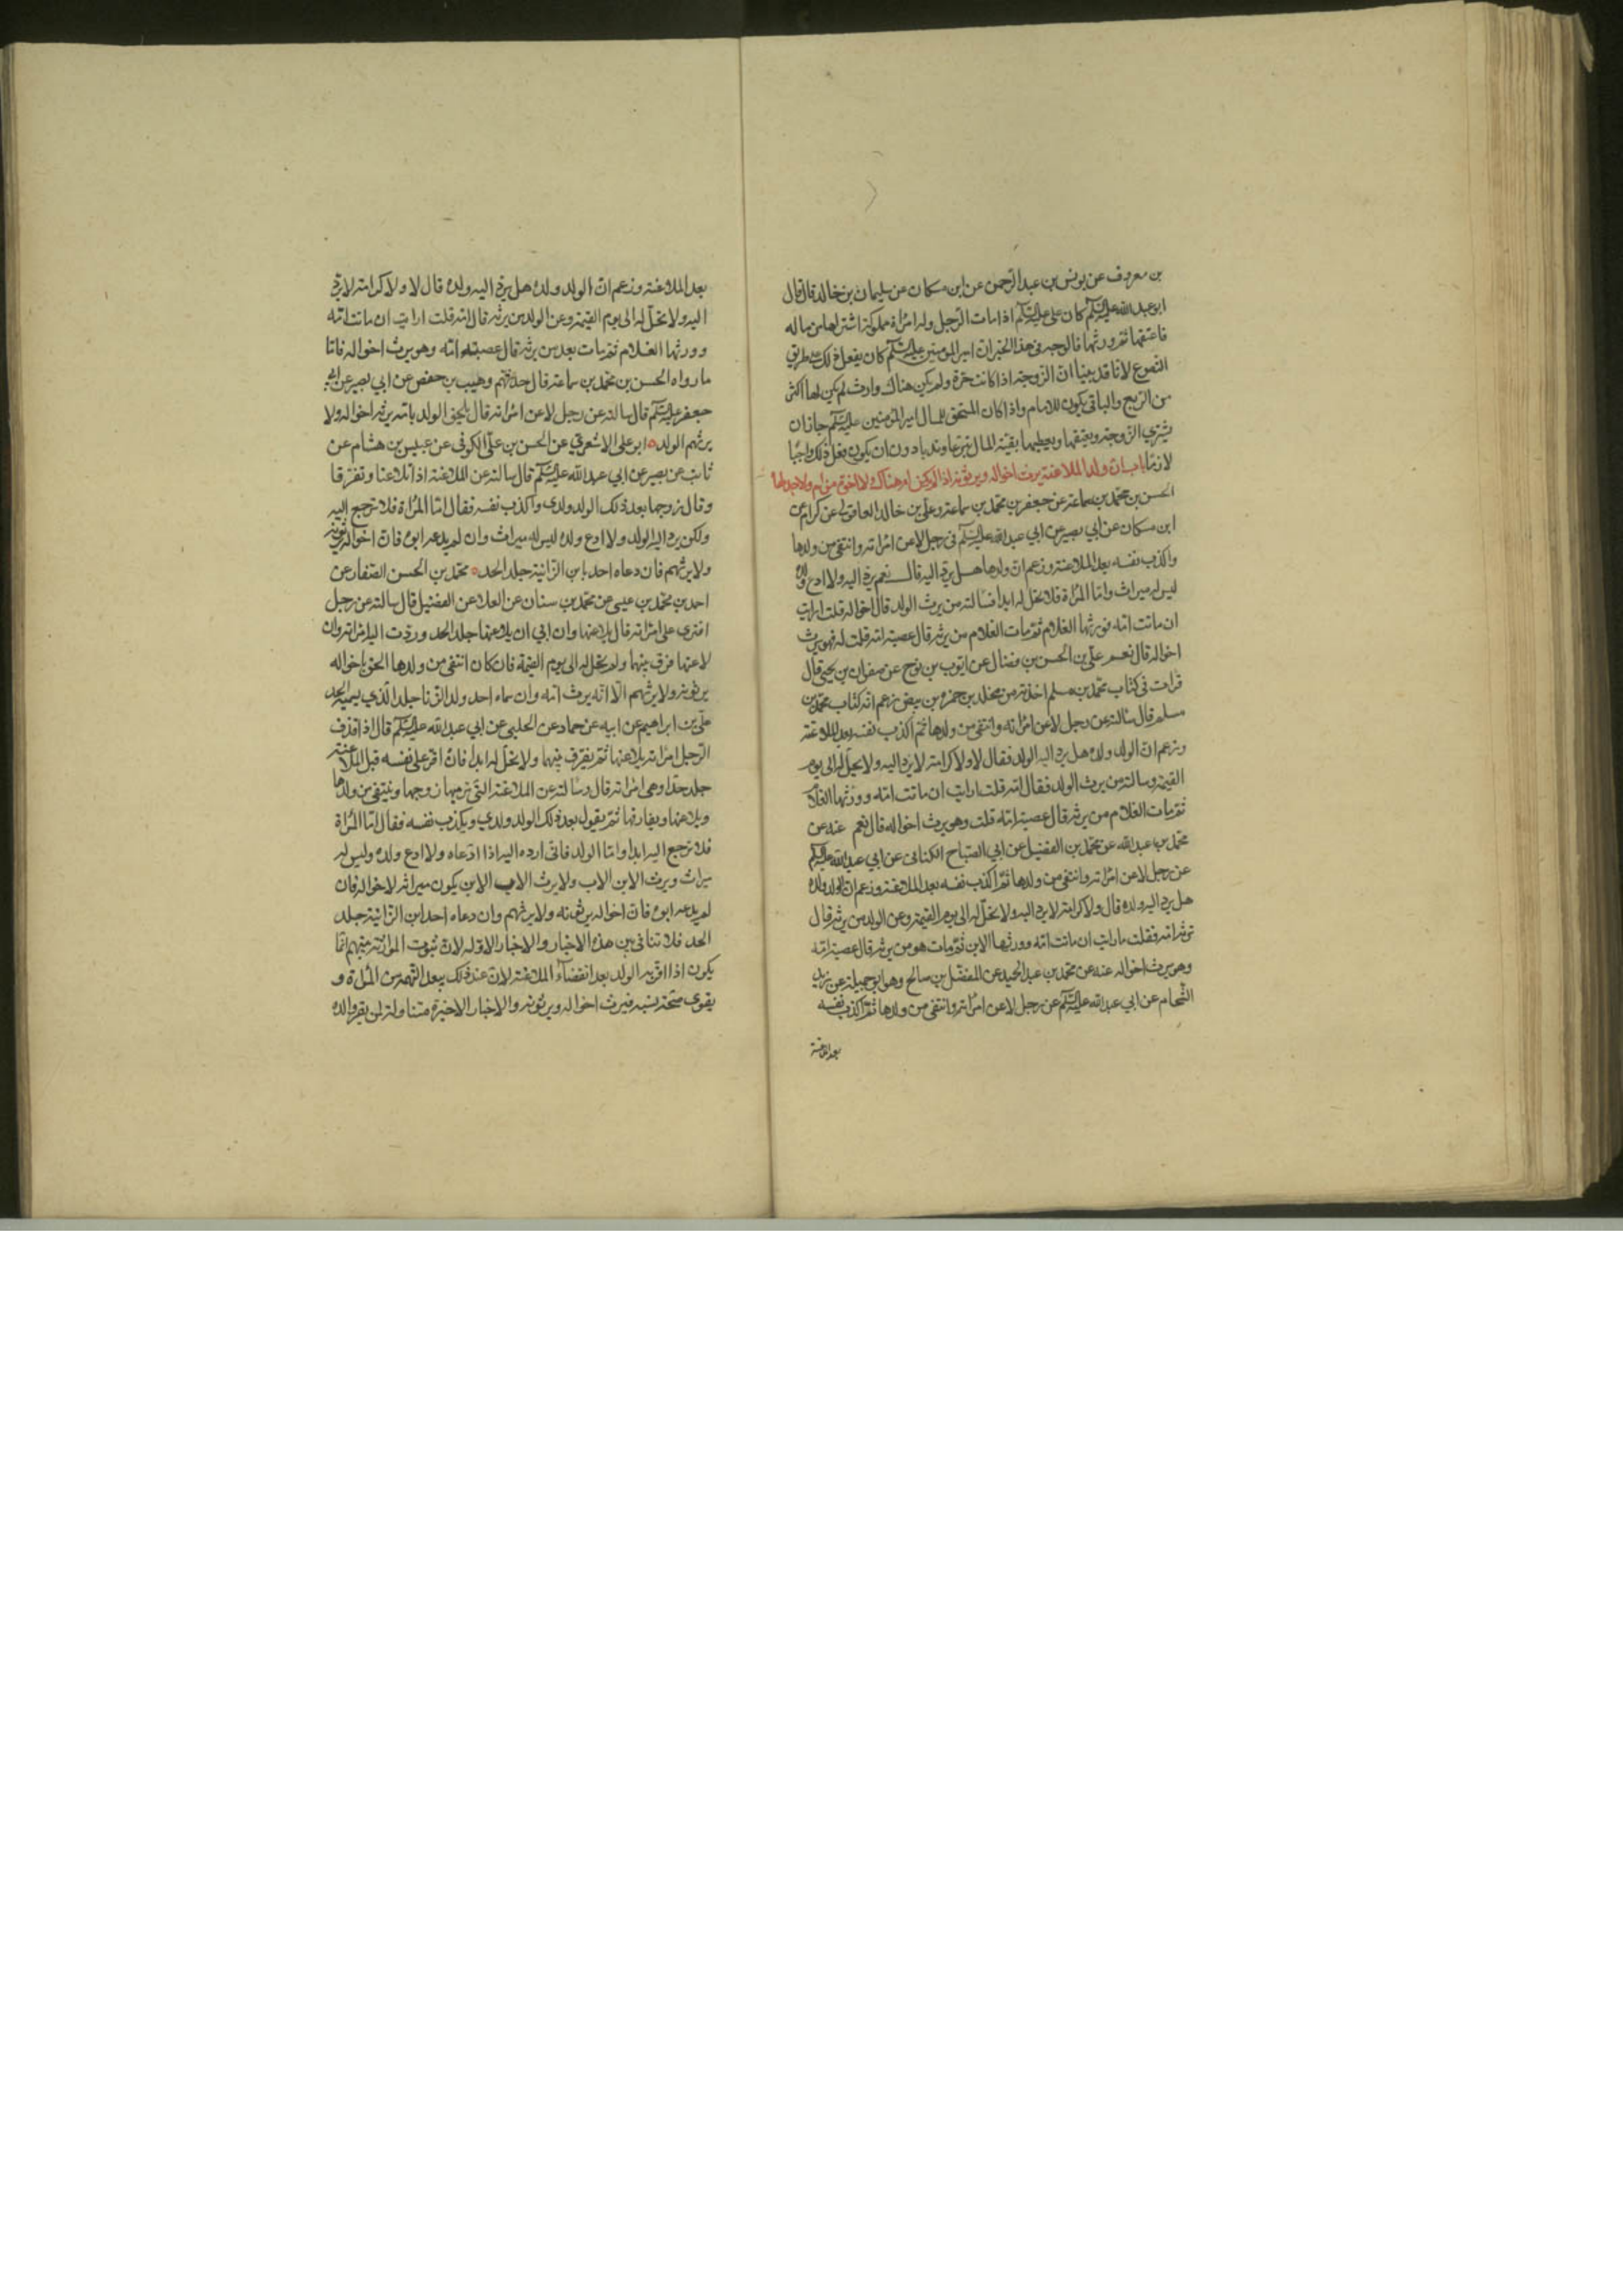 بن معروف عن يونس بن عبد الرحمن عن ابن مسكان عن سليمان بن خالد قال قال
ابو عبد الله عليه السلم كان على عليه السلم اذا مات الرجل وله امراة مملوكة اشتراها من ماله
فاعتقها ثم ورثها فالوجه فى هذا الخبر ان امير المومنين عليه السلم كان يفعل ذلك على طريق
التطوع لانا قد بينا ان الزوجة اذا كانت حرة ولم يكن هناك وارث لم يكن لها اكثر
من الربع والباقى يكون للامام واذا كان المستحق للمال امير المؤمنين عليه السلم جاز ان
يشترى الزوجة ويعتقها ويعطيها بقية المال تبرعا وندبا دون ان يكون فعل ذلك واجبا
لازما باب ان ولد الملاعنة يرث اخواله ويرثونه اذا لم يكن ام هناك ولا اخوة من ام ولا جد لها
الحسن بن محمد بن سماعة عن جعفر بن محمد بن سماعة وعلى بن خالد العاقولى عن كرام عن
ابن مسكان عن ابي بصير عن ابي عبد الله عليه السلم فى رجل لاعن امراته وانتفى من ولدها
واكذب نفسه بعد الملاعنة وزعم ان ولدها هل يرد اليه قال نعم يرد اليه ولا ادع ولده
ليس له ميراث واما المراة فلا تحل له ابدا فسالته من يرث الولد قال اخواله قلت ارايت
ان ماتت امه فورثها الغلام ثم مات الغلام من يرثه قال عصبة امه قلت له فهو يرث
اخواله قال نعم على بن الحسن بن فضال عن ايوب بن نوح عن صفوان بن يحيى قال
قرات فى كتاب محمد بن مسلم اخذته من مخلد بن حمزة بن بيض زعم انه كتاب محمد بن
مسلم قال سالته عن رجل لاعن امراته وانتفى من ولدها ثم اكذب نفسه بعد الملاعنة
وزعم ان الولد ولده هل يرد اليه الولد فقال لا ولا كرامة لا يرد اليه ولا يحل له الى يوم
القيمة وسالته من يرث الولد فقال امه قلت ارايت ان ماتت امه وورثها الغلام
ثم مات الغلام من يرثه قال عصبة امه قلت وهو يرث اخواله قال نعم عنه عن
محمد بن عبد الله عن محمد بن الفضيل عن ابي الصباح الكنانى عن ابي عبد الله عليه السلم
عن رجل لاعن امراته وانتفى من ولدها ثم اكذب نفسه بعد الملاعنة وزعم ان الولد ولده
هل يرد اليه ولده قال ولا كرامة لا يرد اليه ولا تحل له الى يوم القيمة وعن الولد من يرثه قال
ترثه امه فقلت ارايت ان ماتت امه وورثها الابن ثم مات هو من يرثه قال عصبة امه
وهو يرث اخواله عنه عن محمد بن عبد الحميد عن المفضل بن صالح وهو ابو جميلة عن زيد
الشحام عن ابي عبد الله عليه السلم عن رجل لاعن امراته وانتفى من ولدها ثم اكذب نفسه
بعد الملاعنة
بعد الملاعنة وزعم ان الولد ولده هل يرد اليه ولده قال لا ولا كرامة لا يرد
اليه ولا تحل له الى يوم القيمة وعن الولد من يرثه قال امه قلت ارايت ان ماتت امه
وورثها الغلام ثم مات بعد من يرثه قال عصبة امه وهو يرث اخواله فاما
ما رواه الحسن بن محمد بن سماعة قال حدثهم وهيب بن حفص عن ابي بصير عن ابي
جعفر عليه السلم قال سالته عن رجل لاعن امراته قال يلحق الولد بامه يرثه اخواله ولا
يرثهم الولد ابو على الاشعرى عن الحسن بن على الكوفى عن عبيس بن هشام عن
ثابت عن بصير عن ابي عبد الله عليه السلم قال سالته عن الملاعنة اذا تلاعنا وتفرقا
وقال زوجها بعد ذلك الولد ولدى واكذب نفسه فقال اما المراة فلا ترجع اليه
ولكن يرد اليه الولد ولا ادع ولده ليس له ميراث وان لم يدعه ابوه فان اخواله يرثونه
ولا يرثهم فان دعاه احد بابن الزانية جلد الحد محمد بن الحسن الصفار عن
احمد بن محمد بن عيسى عن محمد بن سنان عن العلا عن الفضيل قال سالته عن رجل
افترى على امراته قال يلاعنها وان ابي ان يلاعنها جلد الحد وردت اليه امراته وان
لاعنها فرق بينهما ولم تحل له الى يوم القيمة فان كان انتفى من ولدها الحق باخواله
يرثونه ولا يرثهم الا انه يرث امه وان سماه احد ولد الزنا جلد الذي يسميه الحد
على بن ابراهيم عن ابيه عن حماد عن الحلبى عن ابي عبد الله عليه السلم قال اذا قذف
الرجل امراته يلاعنها ثم يفرق بينهما ولا تحل له ابدا فان اقر على نفسه قبل الملاعنة
جلد حدا وهى امراته قال وسالته عن الملاعنة التى يرميها زوجها وينتفى من ولدها
ويلاعنها ويفارقها ثم يقول بعد ذلك الولد ولدي ويكذب نفسه فقال اما المراة
فلا ترجع اليه ابدا واما الولد فانى ارده اليه اذا ادعاه ولا ادع ولده وليس له
ميراث ويرث الابن الاب ولا يرث الاب الابن يكون ميراثه لاخواله فان
لم يدعه ابوه فان اخواله يرثونه ولا يرثهم وان دعاه احد ابن الزانية جلد
الحد فلا تنافى بين هذه الاخبار والاخبار الاوله لان ثبوت الموارثة بينهم انما
يكون اذا اقر به الولد بعد انقضاء الملاعنة لان عند ذلك يبعد التهمة من المراة و
يقوى صحة نسبه فيرث اخواله ويرثونه والاخبار الاخيرة متناولة لمن يقر والده